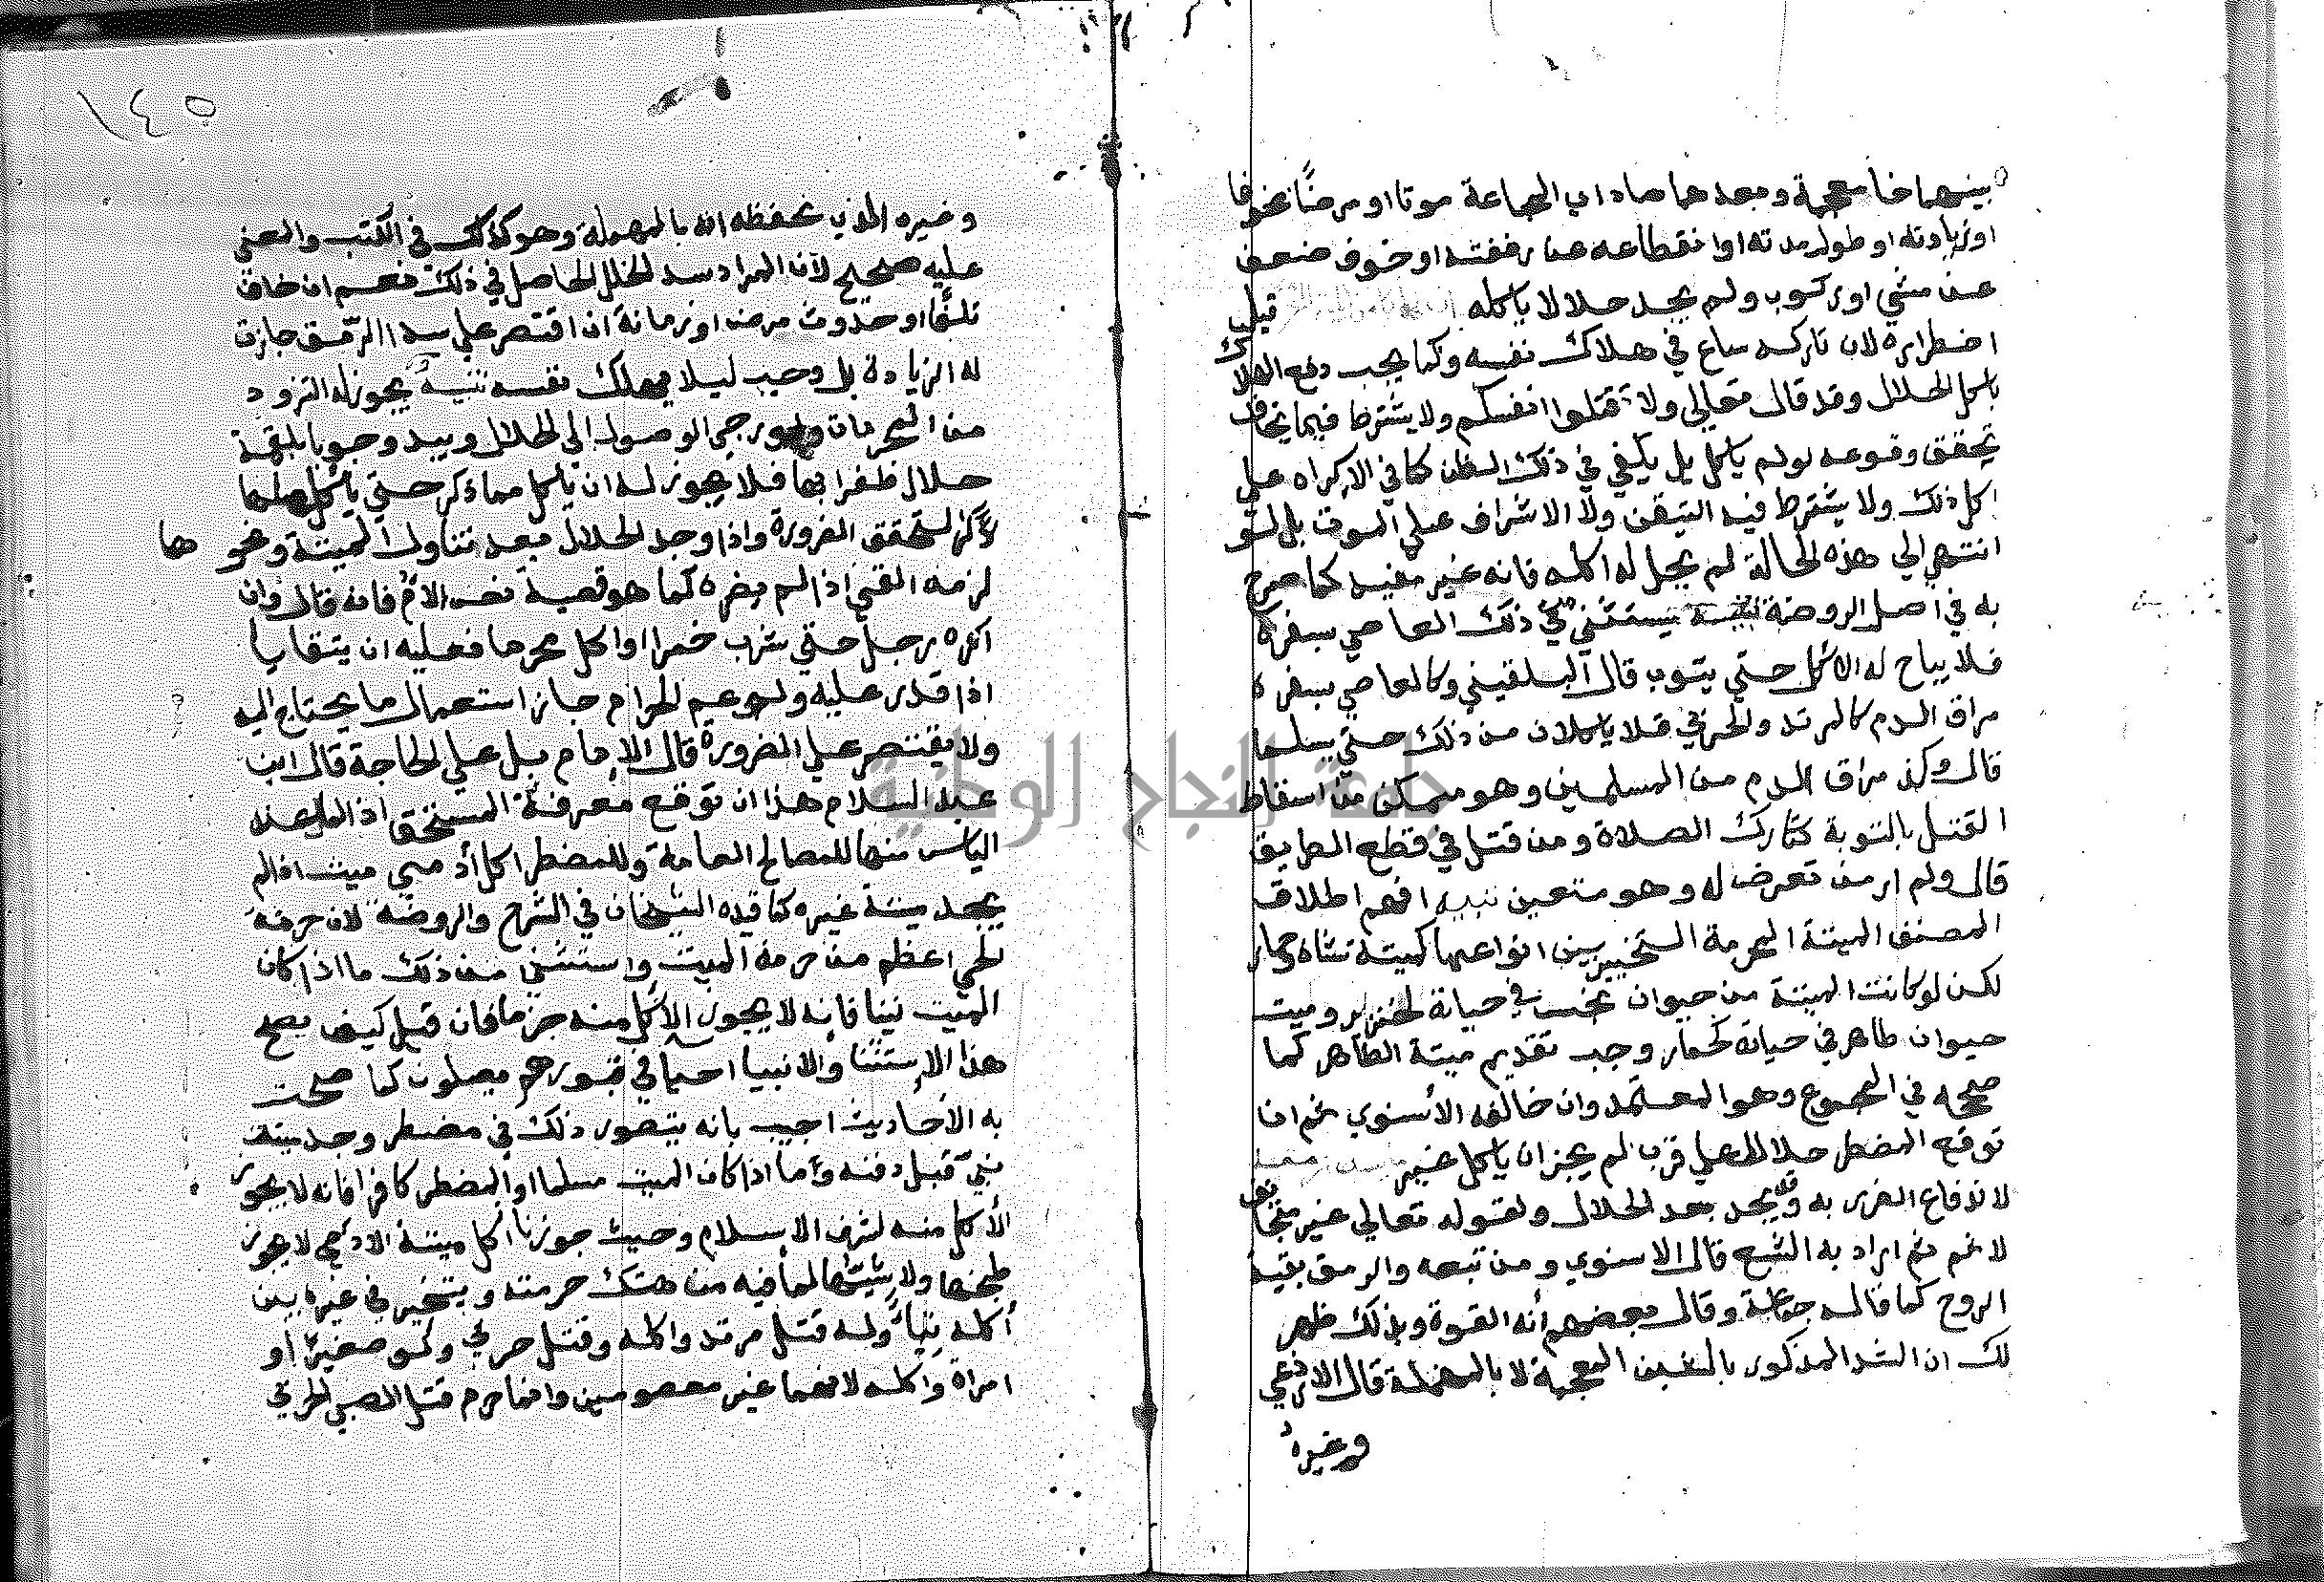 بينهما خا معجمة وبعدها صاد اي المجاعة موتا او مرضا مخوفا
او زيادته او طول مدته او انقطاعه عن رفقته او خوف ضعف
عن مشي او ركوب ولم يجد حلالا ياكله قبل
اضطراره لان تاركه ساع في هلاك نفسه وكما يجب دفع الهلاك
باكل الحلال وقد قال تعالى ولا تقتلوا انفسكم ولا يشترط فيما يخاف
تحقق وقوعه لو لم ياكل بل يكفي في ذلك الظن كما في الاكراه على
اكل ذلك ولا يشترط فيه التيقن ولا الاشراف على الموت بل لو
انتهى الي هذه الحالة لم يحل له اكله فانه غير مفيد كما صرح
به في اصل الروضة تنبيه يستثنى من ذلك العاصي بسفره
فلا يباح له الاكل حتي يتوب قال البلقيني وكالعاصي بسفره
مراق الدم كالمرتد والحربي فلا ياكلان من ذلك حتي يسلما
قال وكذا مراق الدم من المسلمين وهو متمكن من اسقاط
القتل بالتوبة كتارك الصلاة ومن قتل في قطع الطريق
قال ولم ار من تعرض له وهو متعين تنبيه افهم اطلاق
المصنف الميتة المحرمة التخيير بين انواعها كميتة شاة وحمار
لكن لو كانت الميتة من حيوان نجس في حياته كخنزير وميت
حيوان طاهر في حياته كحمار وجب تقديم ميتة الطاهر كما
صححه في المجموع وهو المعتمد وان خالفه الاسنوي نعم ان
توقع المضطر حلالا على قرب لم يجز ان ياكل غير
لاندفاع الضرر به وقد يجد بعد الحلال ولقوله تعالي غير متجانف
لاثم ثم اراد به الشبع قال الاسنوي ومن تبعه والرمق بقية
الروح كما قاله جماعة وقال بعضهم انه القوة وبذلك ظهر
لك ان الشد المذكور بالشين المعجمة لا بالمهملة قال الاذرعي
وغيره
٥٤١
وغيره الذي نحفظه انه بالمهملة وهو كذلك في الكتب والمعني
عليه صحيح لان المراد سد الخلل الحاصل في ذلك نعم ان خاف
تلفا او حدوث مرض او زمانة ان اقتصر على سد الرمق جازت
له الزيادة بل وجب ليلا يهلك نفسه تنبيه يجوز له التزود
من المحرمات ولو رجي الوصول الي الحلال ويبدء وجوبا بلقمة
حلال ظفر بها فلا يجوز له ان ياكل مما ذكر حتي ياكلها
لتحقق الضرورة واذا وجد الحلال بعد تناول الميتة ونحوها
لزمه القيء اذا لم يضره كما هو قضية نص الام فانه قال وان
اكره رجل حتي شرب خمرا او اكل محرما فعليه ان يتقايا
اذا قدر عليه ولو عم الحرام جاز استعمال ما يحتاج اليه
ولا يقتصر على الضرورة قال الامام بل على الحاجة قال ابن
عبد السلام هذا ان توقع معرفة المستحق اذ المال عند
الياس منها للمصالح العامة وللمضطر اكل آدمي ميت اذا لم
يجد ميتة غيره كما قيده الشيخان في الشرح والروضة لان حرمة
الحي اعظم من حرمة الميت واستثني من ذلك ما اذا كان
الميت نبيا فانه لا يجوز الاكل منه جزما فان قيل كيف يصح
هذا الاستثنا والانبيا احيا في قبورهم يصلون كما صحت
به الاحاديث اجيب بانه يتصور ذلك في مضطر وجد ميتة
نبي قبل دفنه واما اذا كان الميت مسلما والمضطر كافرا فانه لا يجوز
الاكل منه لشرف الاسلام وحيث جوزنا اكل ميتة الادمي لا يجوز
طبخها ولا شيها لما فيه من هتك حرمته ويتخير في غيره بين
اكله نيا وله قتل مرتد واكله وقتل حربي ولو صغيرا او
امراة واكله لانهما غير معصومين وانما حرم قتل الصبي الحربي
جامعة النجاح الوطنية